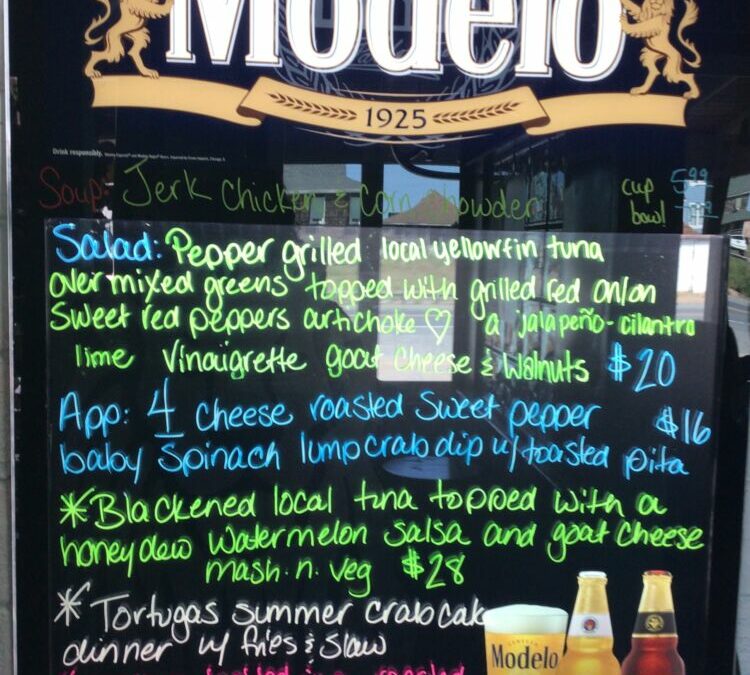 Modelo
1925
Drink responsibly.
Soup: Jerk Chicken & Corn Chowder cup 5.99
bowl
Salad: Pepper grilled local yellowfin tuna
over mixed greens topped with grilled red onion
Sweet red peppers artichoke ♡ a jalapeño-cilantro
lime vinaigrette goat cheese & walnuts $20
App: 4 cheese roasted sweet pepper $16
baby spinach lump crab dip w/ toasted pita
*Blackened local tuna topped with a
honeydew watermelon salsa and goat cheese
mash.n.veg $28
*Tortugas summer crab cake
dinner w/ fries & slaw
roasted
Modelo